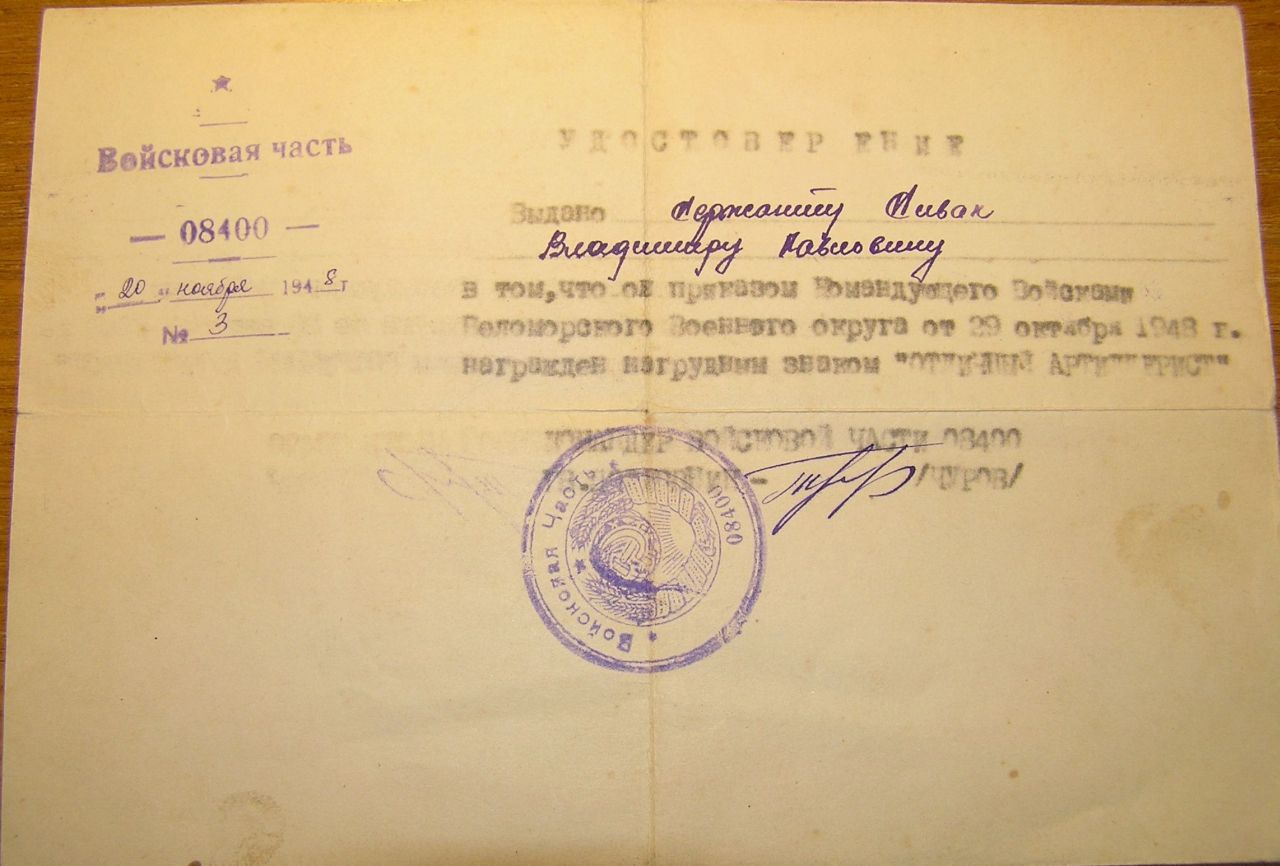 Войсковая часть
— 08400 —
"20" ноября 1948 г
№ 3
УДОСТОВЕРЕНИЕ
Выдано Сержанту Сивак
Владимиру Павловичу
в том, что он приказом Командующего Войсками
Беломорского Военного округа от 29 октября 1948 г.
награжден нагрудным знаком "ОТЛИЧНЫЙ АРТИЛЛЕРИСТ"
КОМАНДИР ВОЙСКОВОЙ ЧАСТИ 08400
- /ЧУРОВ/
Войсковая Часть 08400